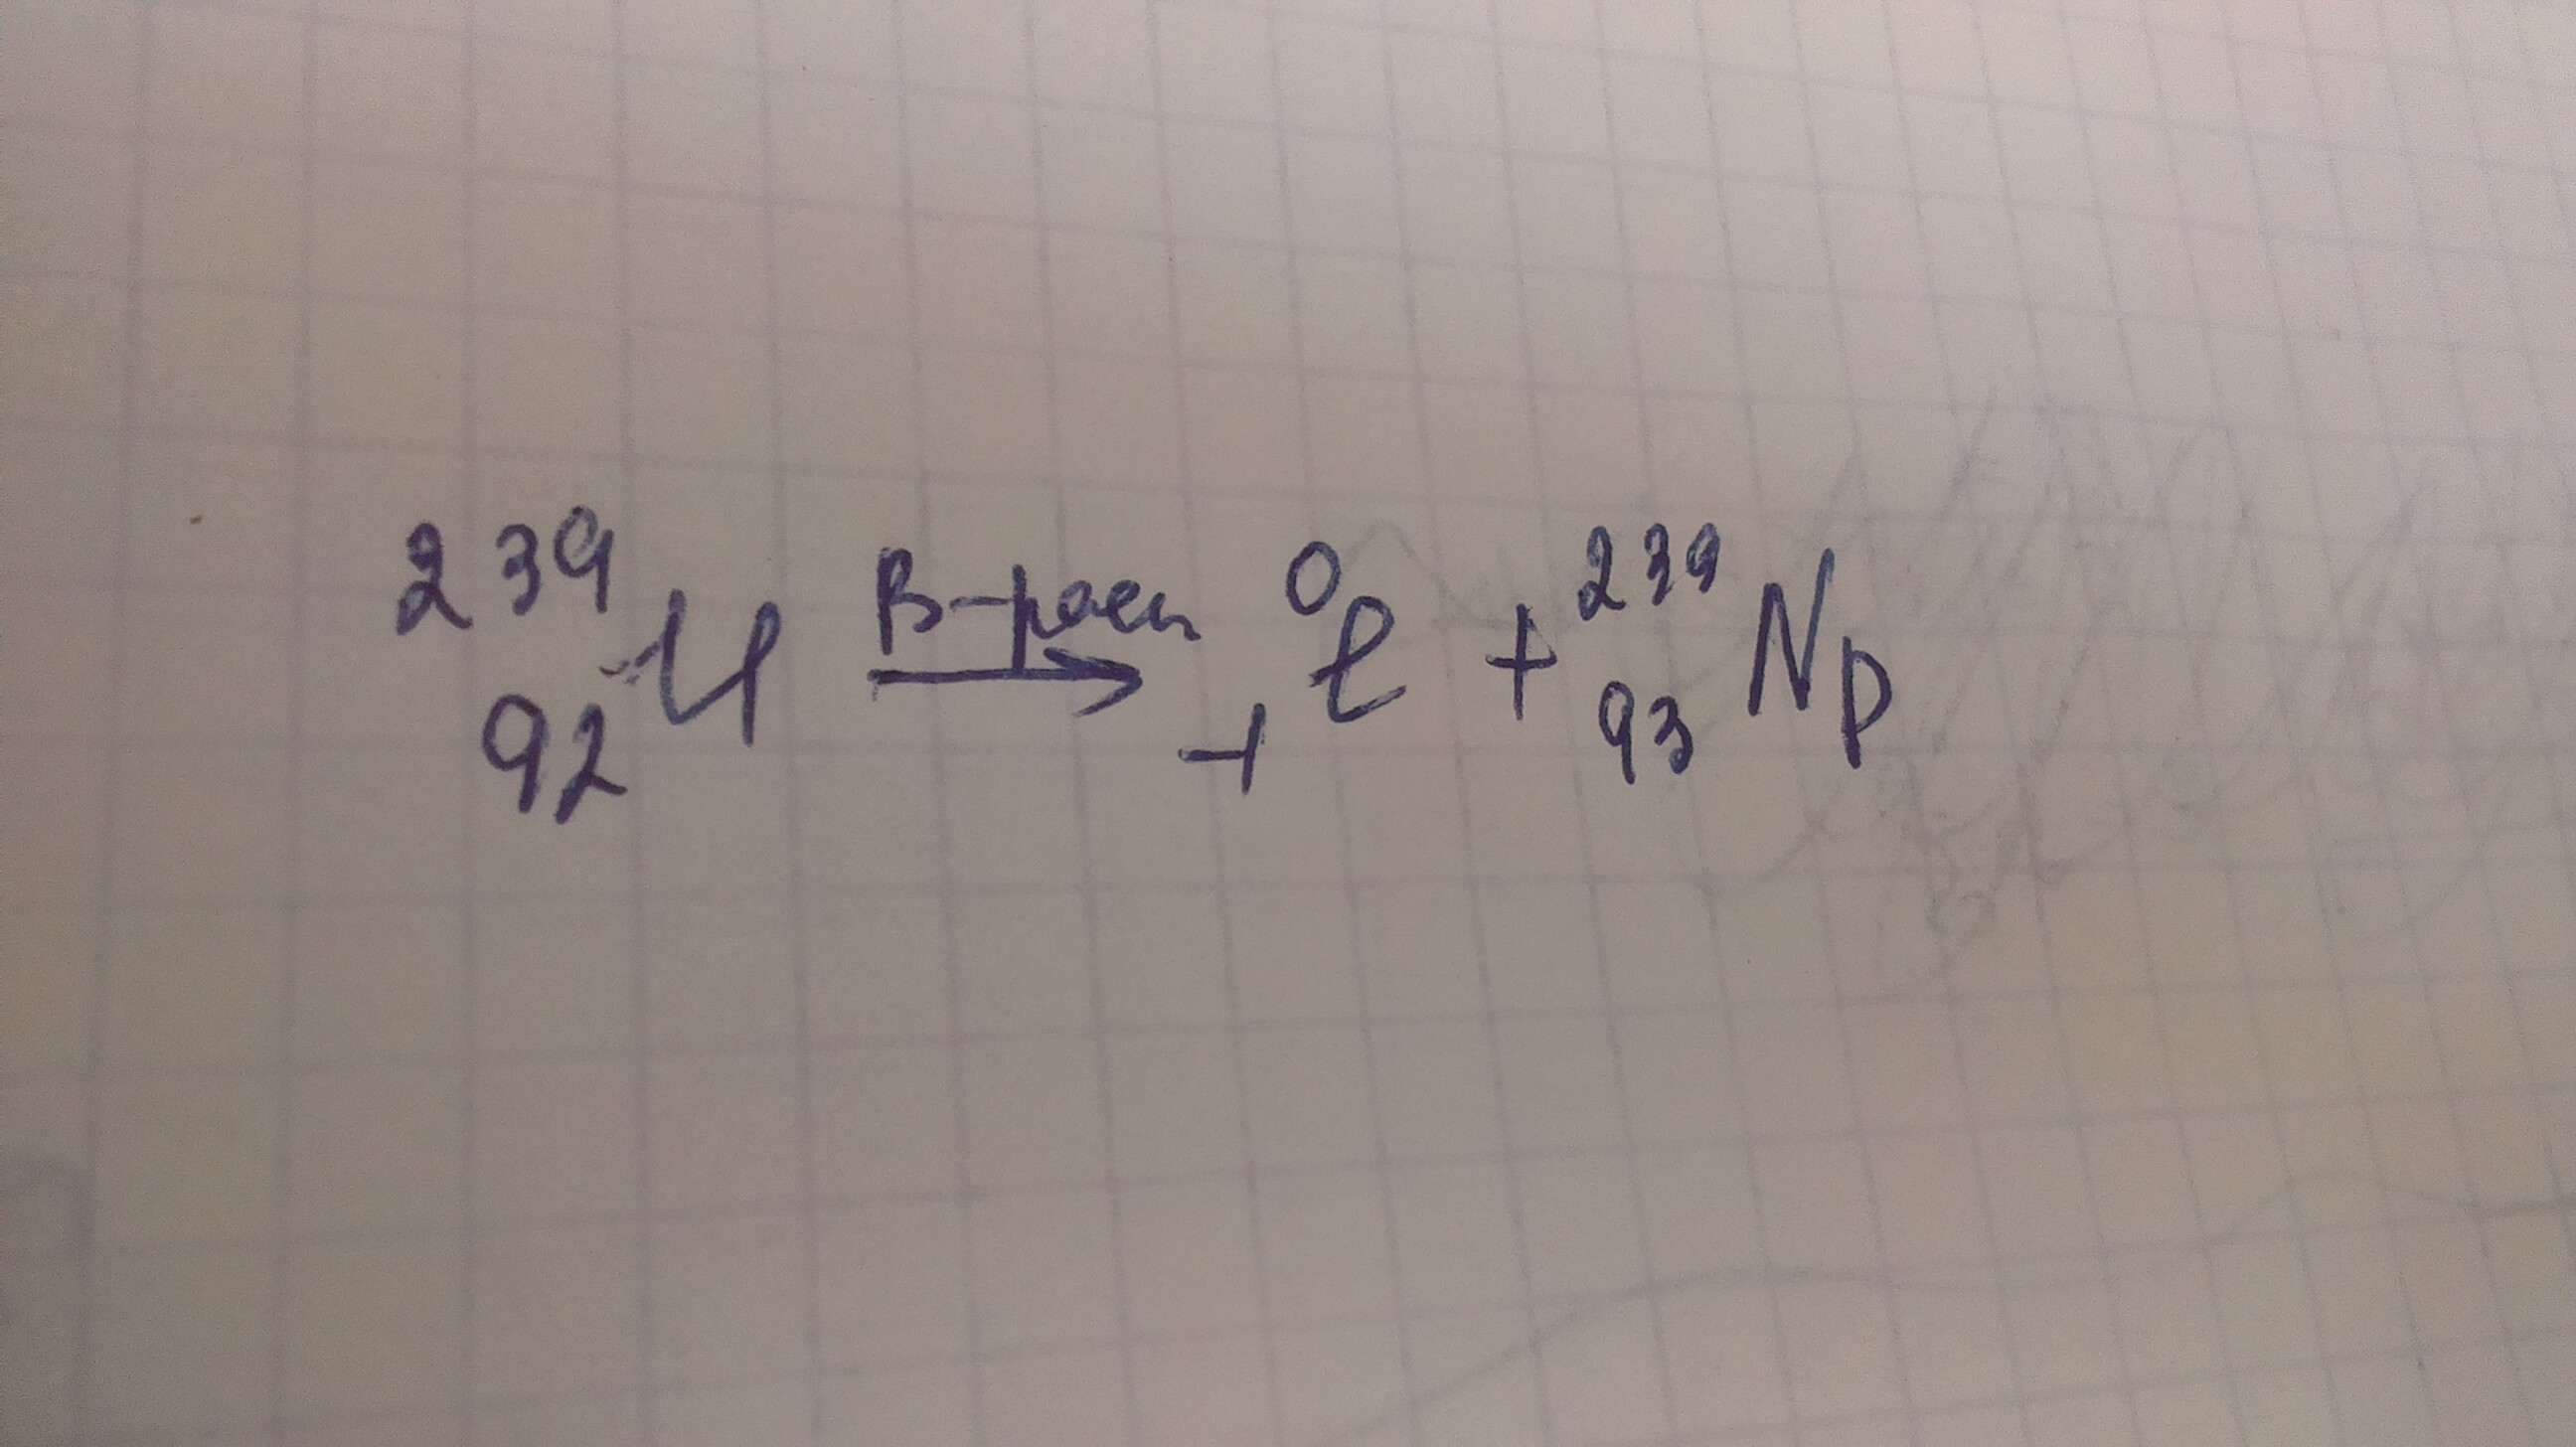 ²³⁹₉₂U β-расп → ⁰₋₁e + ²³⁹₉₃Np